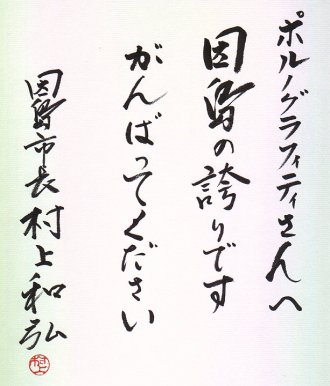 ポルノグラフィティさんへ
因島の誇りです
がんばってください
因島市長 村上和弘
村上